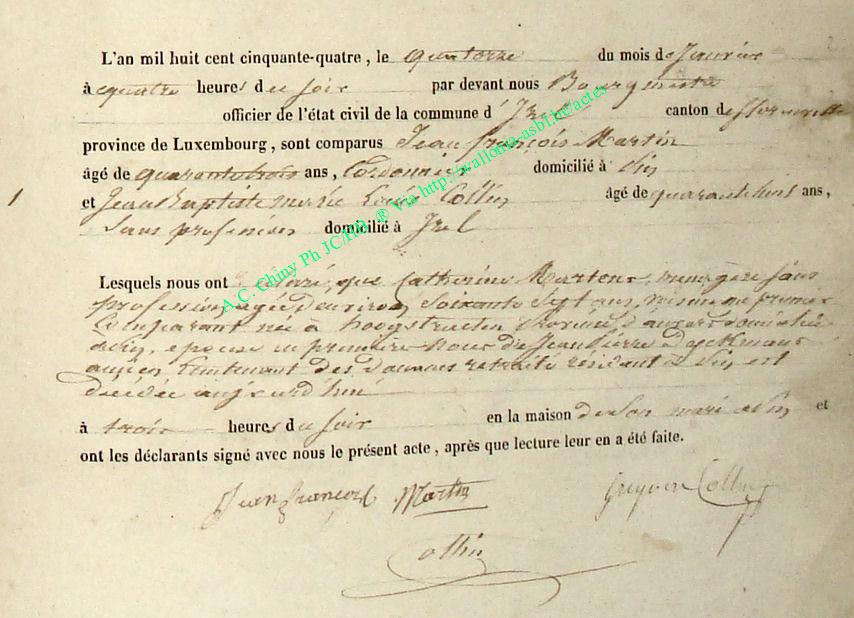 L'an mil huit cent cinquante-quatre, le quatorze du mois de Janvier
à quatre heures du soir par devant nous Bourgmestre
officier de l'état civil de la commune d' Izel canton de florenville
province de Luxembourg, sont comparus Jean françois Martin
âgé de quarante trois ans, Cordonnier domicilié à
1 et Jean Baptiste Louis Collin âgé de quarante huit ans,
Sans profession domicilié à Izel
Lesquels nous ont déclaré, que Catherine Martens, menagère sans
profession, agée d'environ Soixante Sept ans, du premier
Comparant née à hoogstraeten Province d'anvers domiciliée
épouse en première noces de Jean Pierre Dyckmans
ancien Lieutenant des Douannes retraité résidant à est
décédée aujourd'hui
à trois heures du soir en la maison de son mari et
ont les déclarants signé avec nous le présent acte, après que lecture leur en a été faite.
Jean françois Martin Collin
Collin
A.C. Chiny Ph JC/HD ® Via http://wallonia-asbl.be/actes